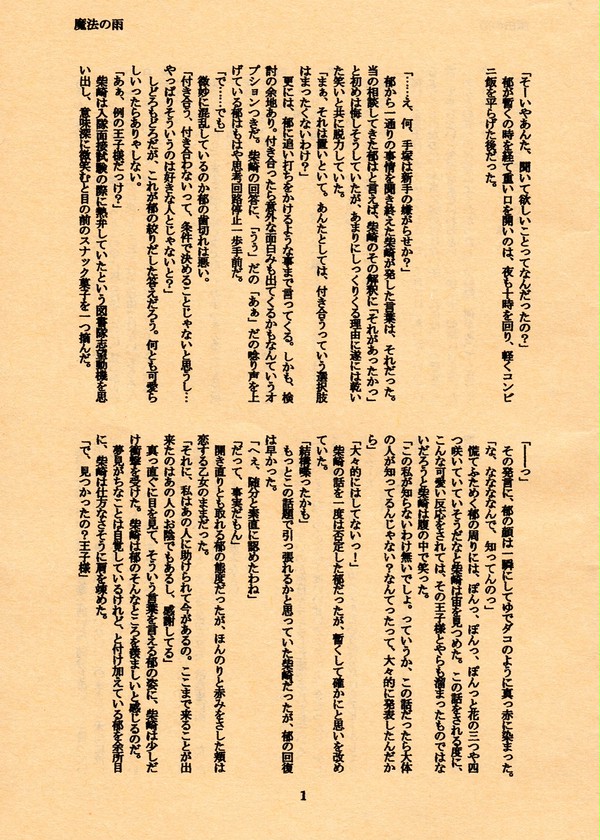 魔法の雨
「そーいやあんた、聞いて欲しいことってなんだったの?」
郁が暫くの時を経て重い口を開いのは、夜も十時を回り、軽くコンビ
ニ飯を平らげた後だった。
「……え、何、手塚は新手の嫌がらせか?」
郁から一通りの事情を聞き終えた柴崎が発した言葉は、それだった。
当の相談してきた郁はと言えば、柴崎のその解釈に「それがあったかっ」
と初めは悔しそうしていたが、あまりにしっくりくる理由に遂には乾い
た笑いと共に脱力していた。
「まぁ、それは置いといて。あんたとしては、付き合うっていう選択肢
はまったくないわけ?」
更には、郁に追い打ちをかけるような事まで言ってくる。しかも、検
討の余地あり。付き合ったら意外な面白みも出てくるかもなんていうオ
プションつきだ。柴崎の回答に、「うぅ」だの「あぁ」だの唸り声を上
げている郁はもはや思考回路停止一歩手前だ。
「で……でも」
微妙に混乱しているのか郁の歯切れは悪い。
「付き合う、付き合わないって、条件で決めることじゃないと思うし…
やっぱりそういうのは好きな人とじゃないと?」
しどろもどろだが、これが郁の絞りだした答えだろう。何とも可愛ら
しいいったらありゃしない。
「あぁ、例の王子様だっけ?」
柴崎は入隊面接試験の際に熱弁していたという図書隊志望動機を思
い出し、意味深に微笑むと目の前のスナック菓子を一つ摘んだ。
「――っ」
その発言に、郁の顔は一瞬にしてゆでダコのように真っ赤に染まった。
「な、なななななんで、知ってんのっ」
慌てふためく郁の周りには、ぽんっ、ぽんっ、ぽんっと花の三つや四
つ咲いていていそうだなと柴崎は宙を見つめた。この話をされる度に、
こんな可愛い反応をされては、その王子様とやらも溜まったものではな
いだろうと柴崎は腹の中で笑った。
「この私が知らないわけ無いでしょ。っていうか、この話だったら大体
の人が知ってるんじゃない?なんてったって、大々的に発表したんだか
ら」
「大々的にはしてないっ!」
柴崎の話を一度は否定した郁だったが、暫くして確かにと思いを改め
ていた。
「結構喋ったかも」
もっとこの話題で引っ張れるかと思っていた柴崎だったが、郁の回復
は早かった。
「へぇ、随分と素直に認めたわね」
「だって、事実だもん」
開き直りとも取れる郁の態度だったが、ほんのりと赤みをさした頬は
恋する乙女のままだった。
「それに、私はあの人に助けられて今があるの。ここまで来ることが出
来たのはあの人のお陰でもあるし、感謝してる」
真っ直ぐに目を見て、そういう言葉を言える郁の姿に、柴崎は少しだ
け衝撃を受けた。柴崎は郁のそんなところを羨ましいと感じるのだ。
夢見がちなことは自覚しているけれど、と付け加えている郁を余所目
に、柴崎は仕方なさそうに肩を竦めた。
「で、見つかったの?王子様」
1